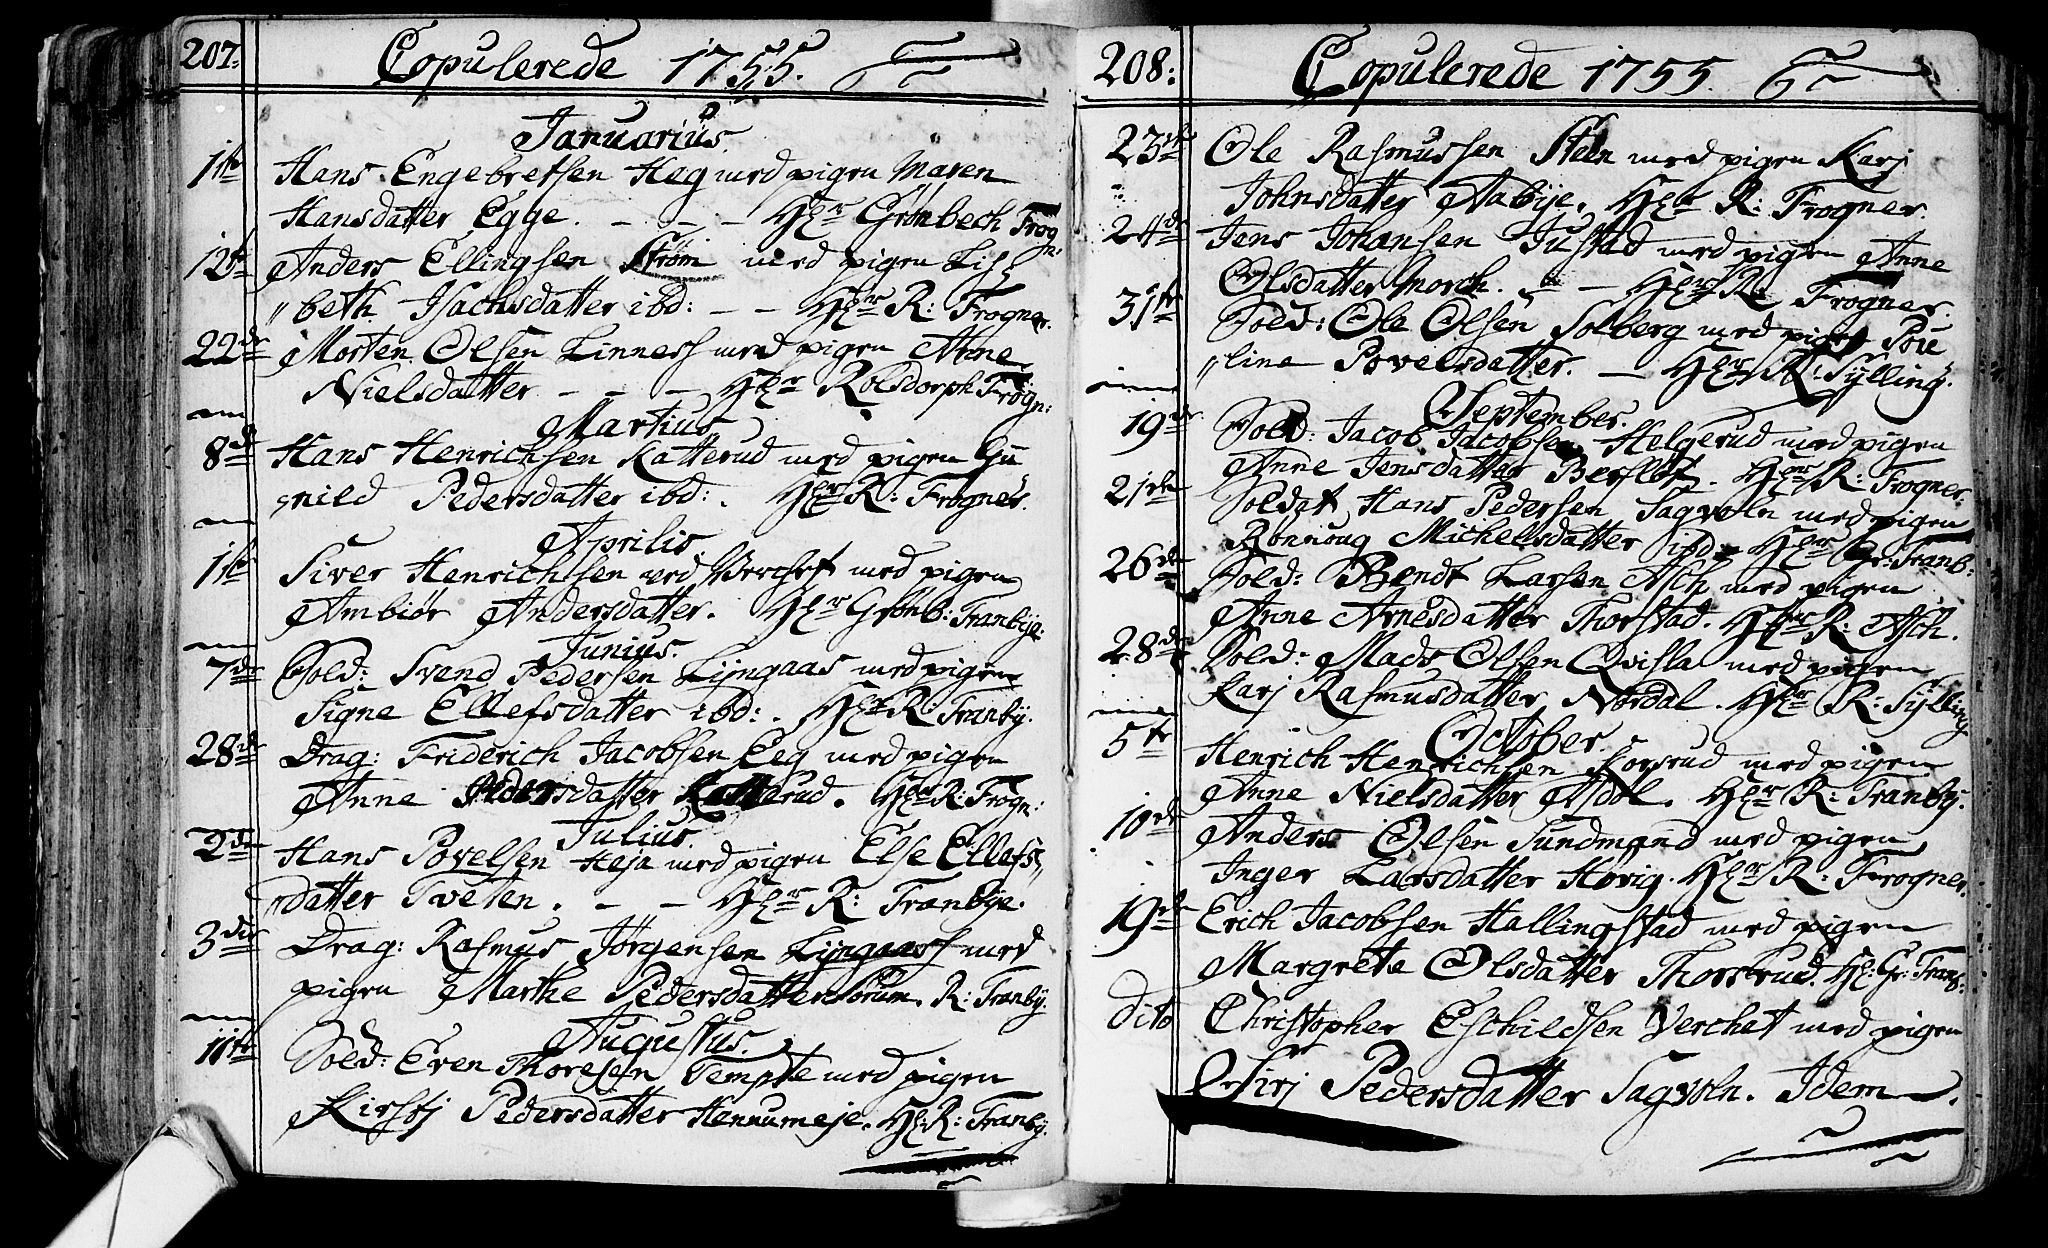 207.
Copulerede 1755.
Januarius.
1ste Hans Engebretsen Hæg med pigen Maren
Hansdatter Egge. - - - Her Grønbech Frogn:
12te Anders Ellingsen Strøm med pigen Lis
"beth Isachsdatter ibd: - - Her R: Frogner.
22de Morten Olsen Linness med pigen Anne
Nielsdatter - - - Her Rolsdorph Frogn:
Martius
8de Hans Henrichsen Katterud med pigen Gu
"nild Pedersdatter ibd: . Her R: Frogner.
Aprilis.
1ste Siver Henrichsen ved Verchet med pigen
Ambiør Andersdatter. Her Grønb: Tranbye:
Junius.
7de Sold: Svend Pedersen Lijngaas med pigen
Signe Ellefsdatter ibd: . Her R: Tranby.
28de Drag: Friderich Jacobsen Eeg med pigen
Anne Pedersdatter Katterud. Her R: Frogn:
Julius.
2den Hans Povelsen Heja med pigen Else Ellefs
"datter Tveten. - - Her R: Tranbye.
3die Drag: Rasmus Jørgensen Lijngaass med
pigen Marthe Pedersdatter Sørum. R: Tranby.
Augustus.
11te Sold: Even Thoresen Tempte med pigen
Kirstj Pedersdatter Hennumeje. H: R: Tranby.
208:
Copulerede 1755.
23de Ole Rasmussen Steen med pigen Karj
Johnsdatter Aabije. Her R: Frogner.
24de Jens Johansen Justad med pigen Anne
Olsdatter Morch. - - Her R: Frogner.
31te Sold: Ole Olsen Solberg med pigen Pou
"line Povelsdatter. - Her R: Sylling.
September.
19de Sold: Jacob Jacobsen Helgerud med pigen
Anne Jensdatter Berfløt. Her R: Frogner.
21de Soldat Hans Pedersen Sagvoln med pigen
Rønnoug Michelsdatter ibd: Her Gr: Tranb:
26de Sold: Bendt Larsen Asch med pigen
Anne Arnesdatter Thorstad. Her R: Asch.
28de Sold: Mads Olsen Qvisla med pigen
Karj Rasmusdatter Nordal. Her R: Sylling
October.
5te Henrich Henrichsen Korsrud med pigen
Anne Nielsdatter Asdøl. Her R: Tranby.
10de Anders Olsen Sundmand med pigen
Inger Larsdatter Hørig. Her R: Frogner.
19de Erich Jacobsen Hallingstad med pigen
Margrete Olsdatter Thorsrud. H: Gr: Tranb:
dito Christopher Eschildsen Verchet med pigen
Sirj Pedersdatter Sagvoln. Idem.